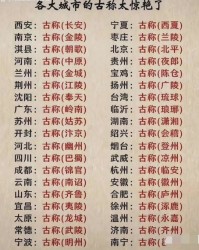 各大城市的古称太惊艳了
西安：古称(长安) 宁夏：古称(西夏)
南京：古称(金陵) 枣庄：古称(兰陵)
淇县：古称(朝歌) 北京：古称(北平)
河南：古称(中原) 贵州：古称(夜郎)
兰州：古称(金城) 宝鸡：古称(陈仓)
荆州：古称(江陵) 扬州：古称(广陵)
沈阳：古称(奉天) 台湾：古称(琉球)
广东：古称(岭南) 临沂：古称(琅琊)
苏州：古称(姑苏) 湖南：古称(潇湘)
开封：古称(汴京) 绍兴：古称(会稽)
河北：古称(幽州) 烟台：古称(登州)
四川：古称(巴蜀) 武威：古称(凉州)
成都：古称(锦官) 杭州：古称(临安)
云南：古称(南诏) 安徽：古称(徽州)
山东：古称(齐鲁) 合肥：古称(庐州)
宜昌：古称(夷陵) 徐州：古称(彭城)
太原：古称(龙城) 温州：古称(永嘉)
常德：古称(武陵) 济州：古称(齐州)
宁波：古称(明州) 南宁：古称